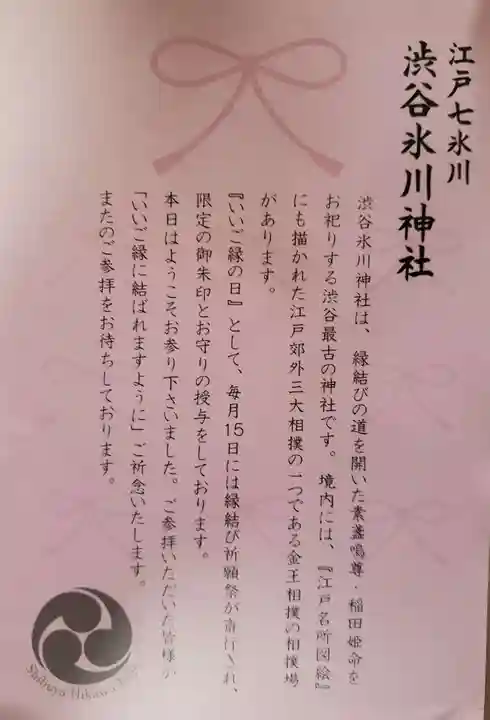 江戸七氷川
渋谷氷川神社
渋谷氷川神社は、縁結びの道を開いた素盞嗚尊・稲田姫命を
お祀りする渋谷最古の神社です。境内には、『江戸名所図絵』
にも描かれた江戸郊外三大相撲の一つである金王相撲の相撲場
があります。
『いいご縁の日』として、毎月15日には縁結び祈願祭が斎行され、
限定の御朱印とお守りの授与をしております。
本日はようこそお参り下さいました。ご参拝いただいた皆様が
「いいご縁に結ばれますように」ご祈念いたします。
またのご参拝をお待ちしております。
Shibuya Hikawa